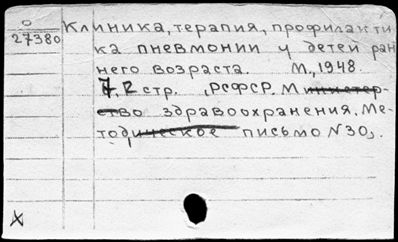 О
27380
Клиника, терапия, профилакти
ка пневмонии у детей ран
него возраста. М., 1948.
7, 2 стр. , РСФСР. Министер-
ство здравоохранения. Ме-
тодическое письмо N 30,.